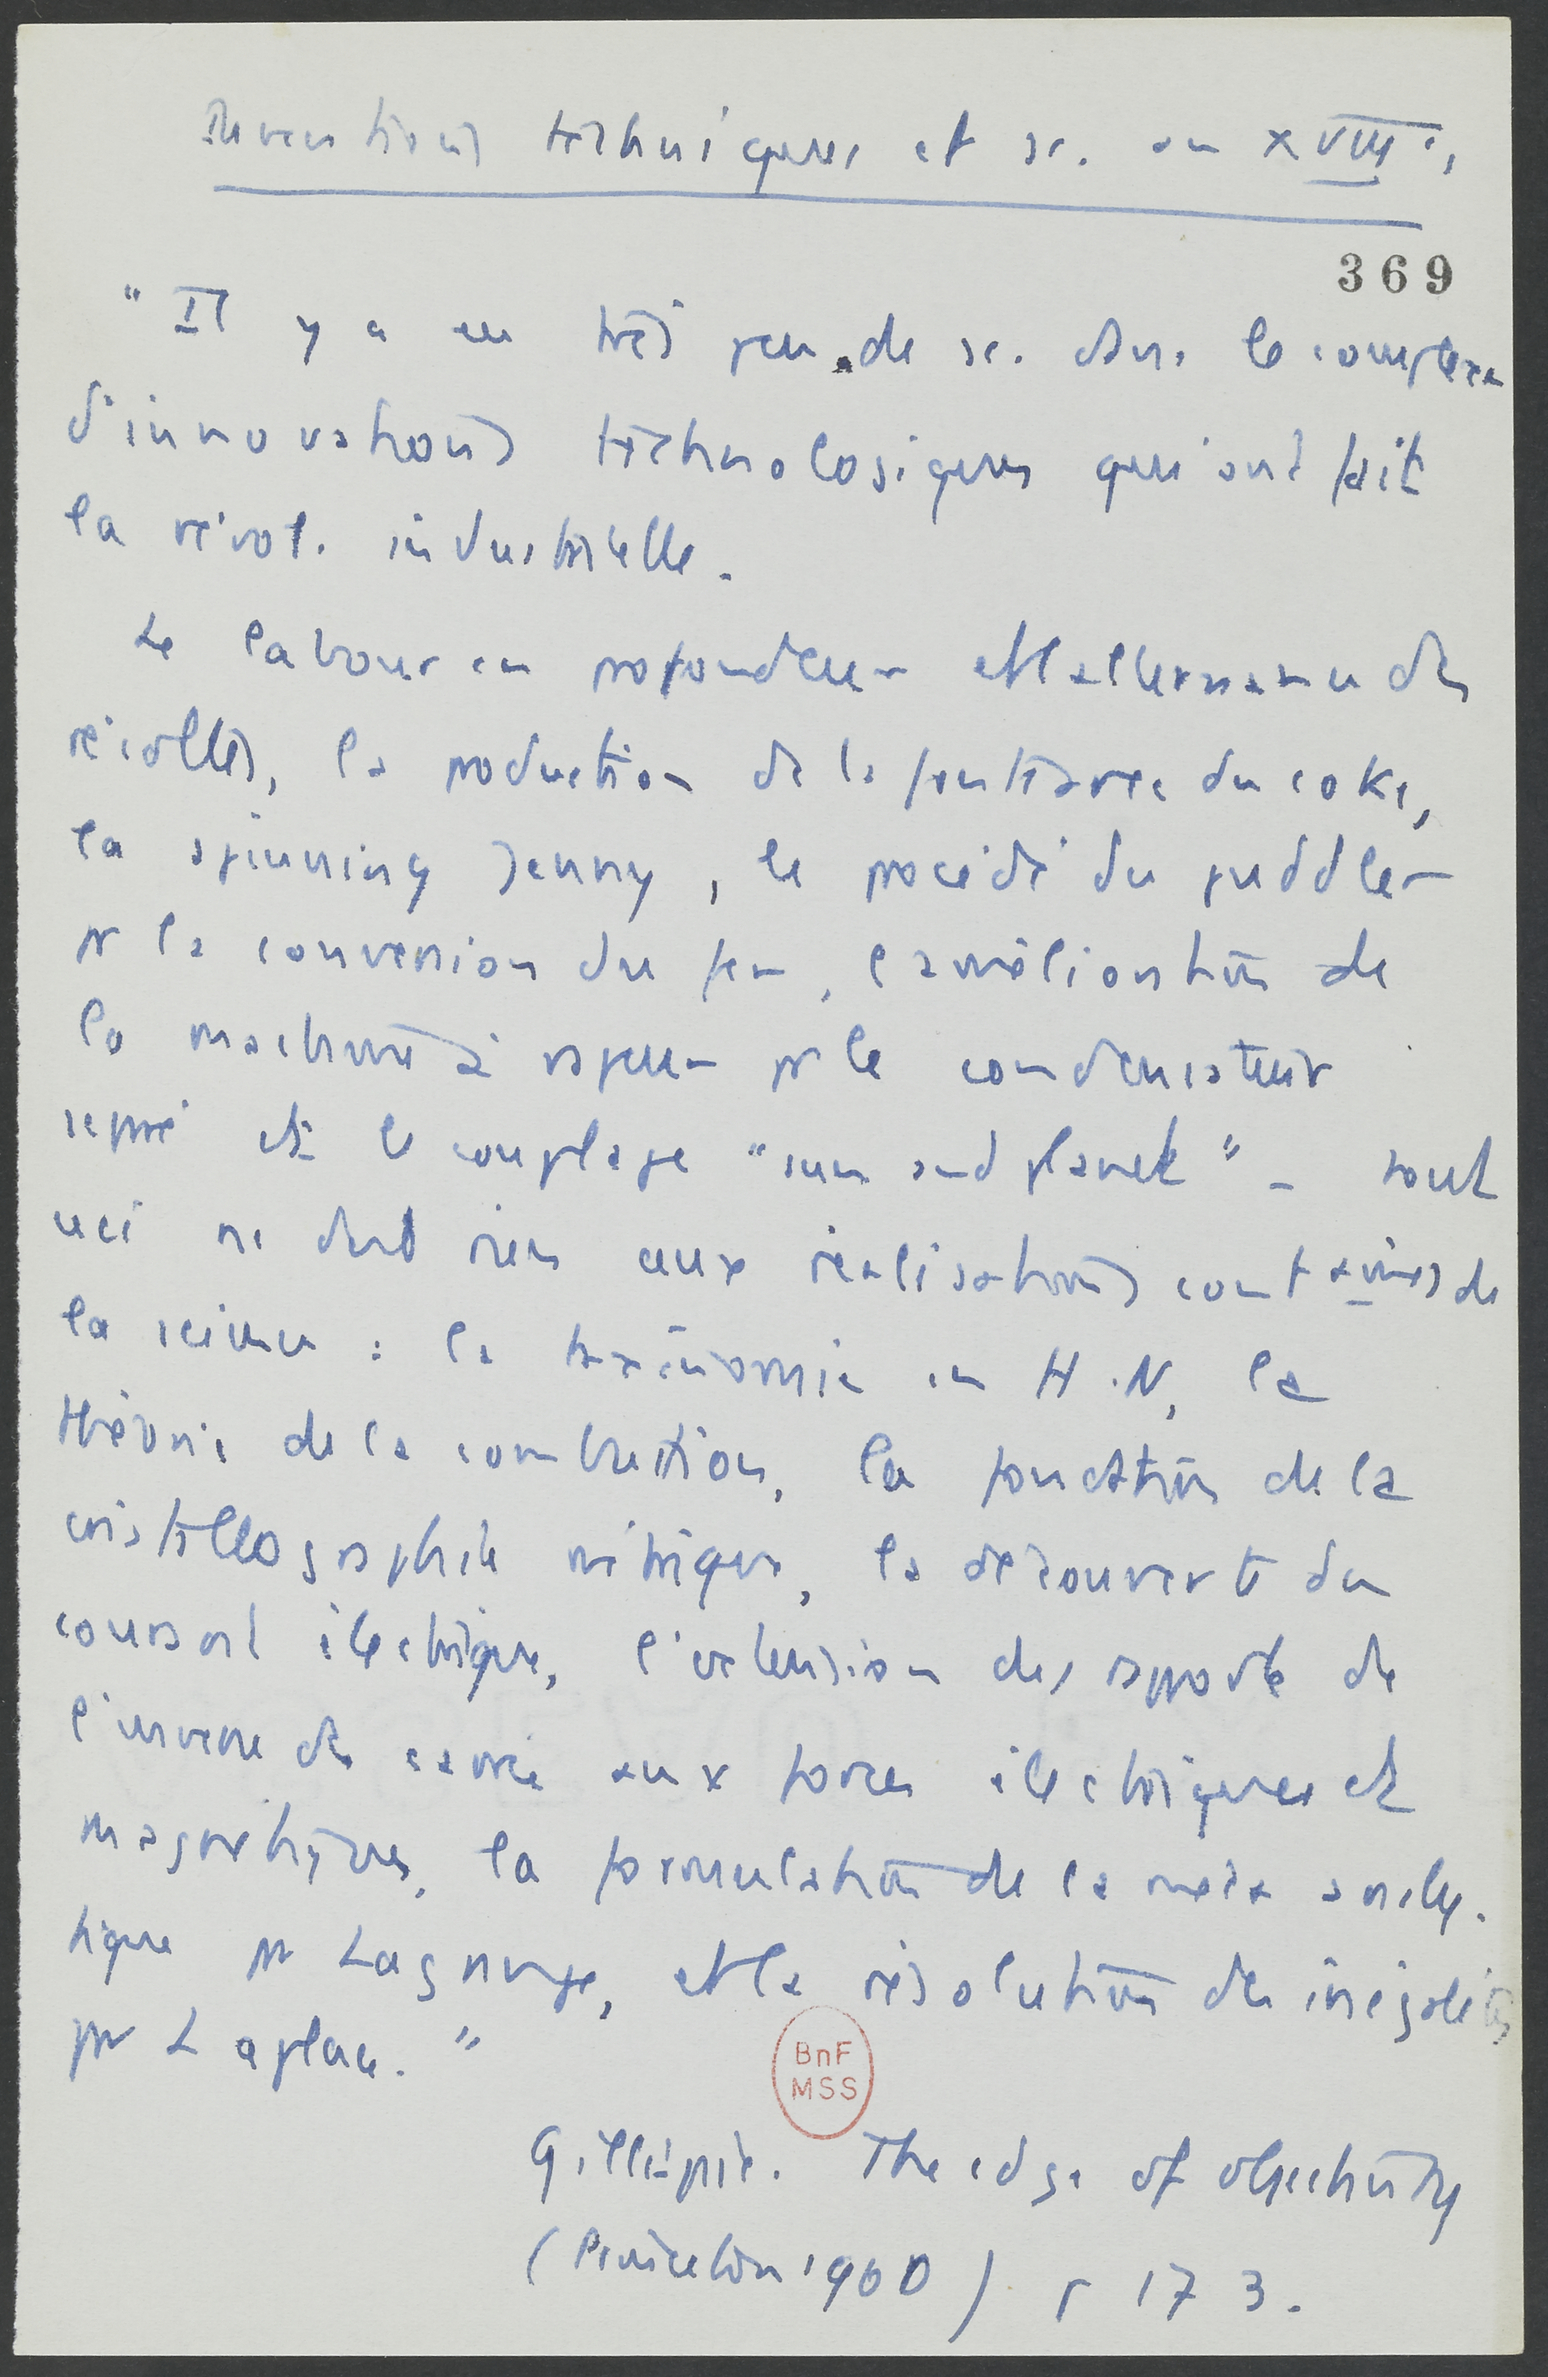 Inventions techniques et sc. au XVIIIe s
369
"Il y a eu très peu de sc. dans le complexe
d'innovations technologiques qui ont fait
la révol. industrielle.
Le labour en profondeur et l'alternance des
récoltes, la production de la fonte avec du coke,
la spinning Jenny, le procédé du puddler
pr la conversion du fer, l'amélioration de
la machine à vapeur pr le condensateur
séparé et le couplage "sun and planet" - tout
ceci ne doit rien aux réalisations contemines de
la science : la taxinomie en H.N, la
théorie de la combustion, la fondation de la
cristallographie métrique, la découverte du
courant électrique, l'extension des rapports de
l'inverse des carrés aux forces électriques et
magnétiques, la formulation de la méca analy-
tique pr Lagrange, et la résolution des inégalités
pr Laplace."
BnF
MSS
Gillispie. The edge of objectivity
(Princeton 1960) p 173.